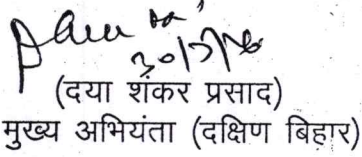 (दया शंकर प्रसाद)
मुख्य अभियंता (दक्षिण बिहार)